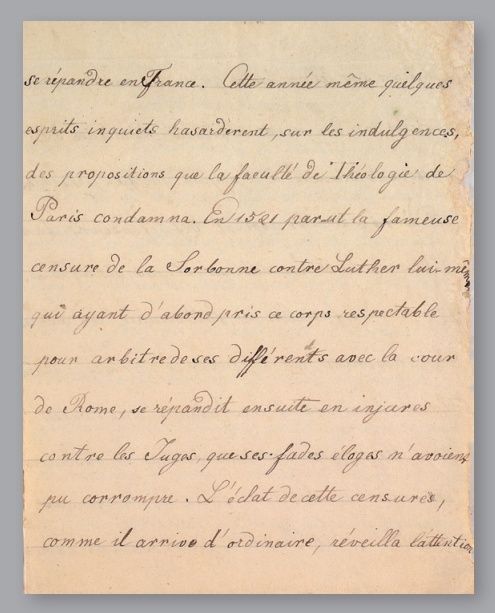 se répandre en France. Cette année même quelques
esprits inquiets hasarderent, sur les indulgences,
des propositions que la faculté de Théologie de
Paris condamna. En 1521 parut la fameuse
censure de la Sorbonne contre Luther lui-même
qui ayant d'abord pris ce corps respectable
pour arbitre de ses différents avec la cour
de Rome, se répandit ensuite en injures
contre les Juges, que ses fades éloges n'avoient
pu corrompre. L'éclat de cette censure,
comme il arrive d'ordinaire, réveilla l'attention